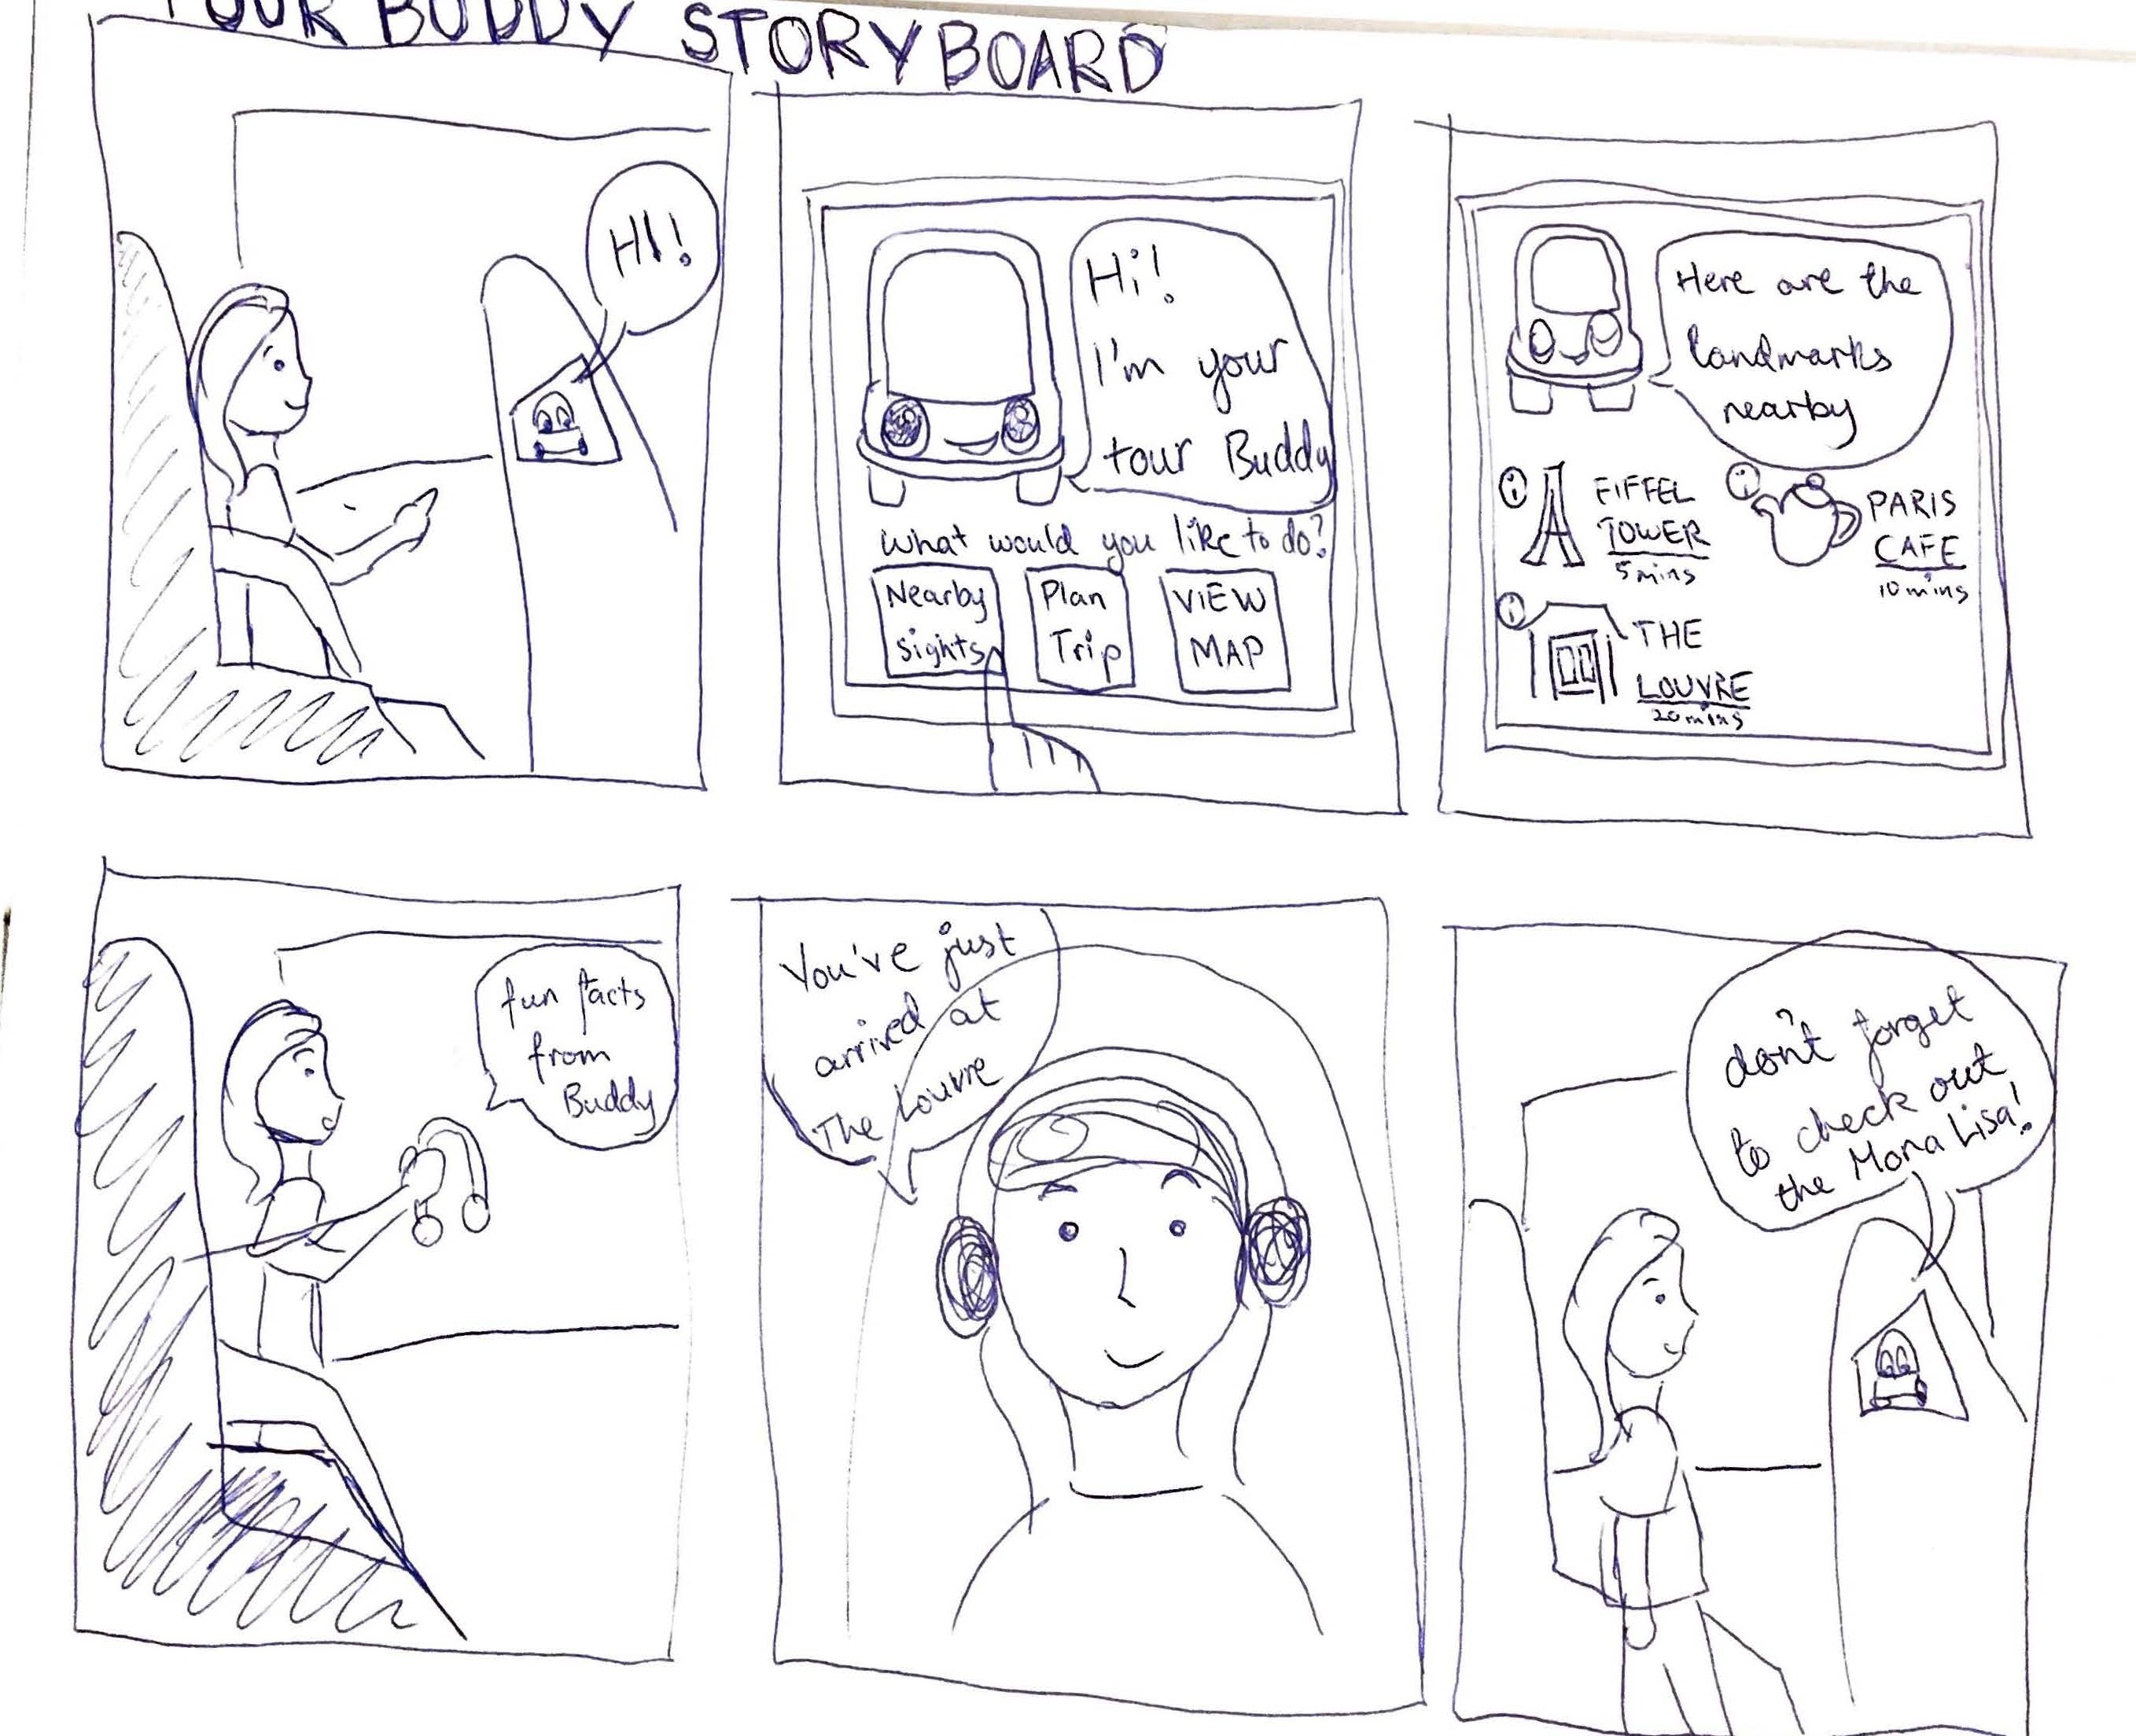 TOUR BUDDY STORYBOARD
HI!
Hi!
I'm your
tour Buddy
What would you like to do?
Nearby
sights
Plan
Trip
VIEW
MAP
Here are the
landmarks
nearby
i
EIFFEL
TOWER
5mins
i
PARIS
CAFE
10 mins
i
THE
LOUVRE
20mins
fun facts
from
Buddy
You've just
arrived at
The Louvre
don't forget
to check out
the Mona Lisa!